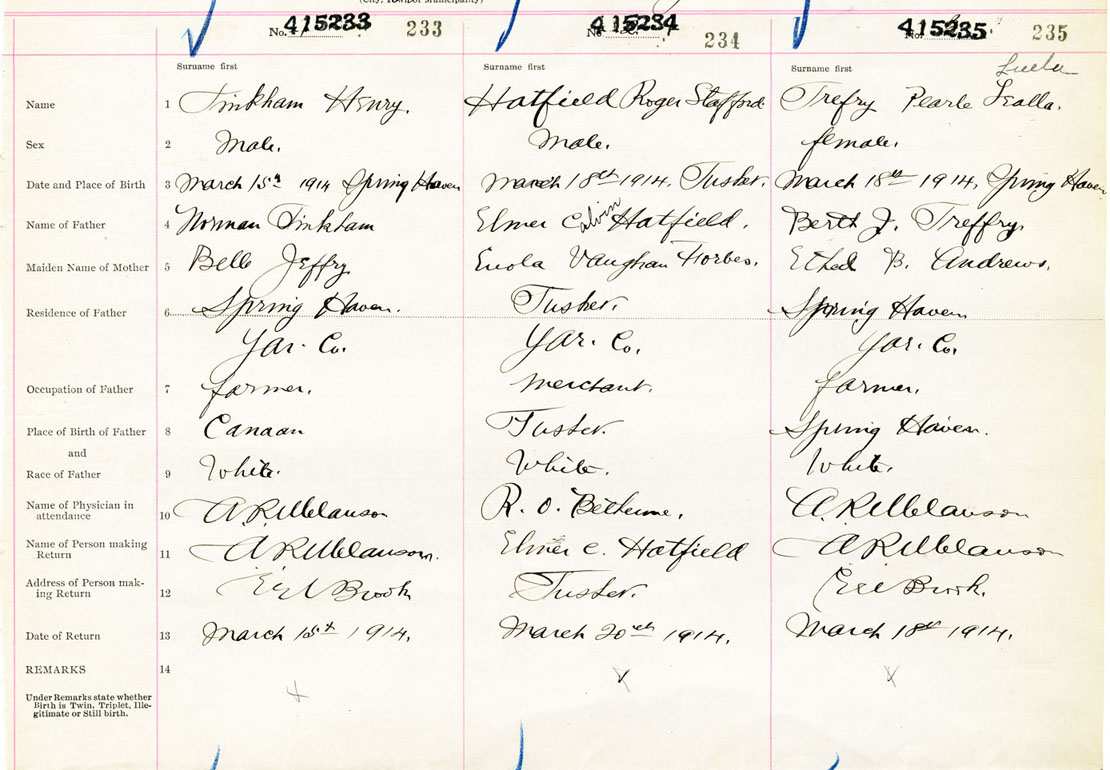 (City, Town or Municipality)
No. 415233 233
No. 415234 234
No. 415235 235
Surname first Surname first Surname first
Luella
Name 1 Tinkham Henry. Hatfield Roger Stafford Trefry Pearle Lealla.
Sex 2 Male. Male. female.
Date and Place of Birth 3 March 15th 1914 Spring Haven March 18th 1914. Tusket. March 18th 1914. Spring Haven
Name of Father 4 Norman Tinkham Elmer Calvin Hatfield. Berth J. Treffry.
Maiden Name of Mother 5 Belle Jeffry Enola Vaughan Forbes. Ethel B. Andrews.
Residence of Father 6 Spring Haven. Tusket. Spring Haven
Yar. Co. Yar. Co. Yar. Co.
Occupation of Father 7 farmer. merchant. farmer.
Place of Birth of Father 8 Canaan Tusket. Spring Haven.
and
Race of Father 9 White. White. White.
Name of Physician in
attendance 10 A. R. Melanson R. O. Bethune. A. R. Melanson
Name of Person making
Return 11 A. R. Melanson. Elmer C. Hatfield A. R. Melanson
Address of Person mak-
ing Return 12 Eel Brook Tusket. Eel Brook.
Date of Return 13 March 15th 1914. March 20th 1914. March 18th 1914.
REMARKS 14
Under Remarks state whether
Birth is Twin, Triplet, Ille-
gitimate or Still birth.